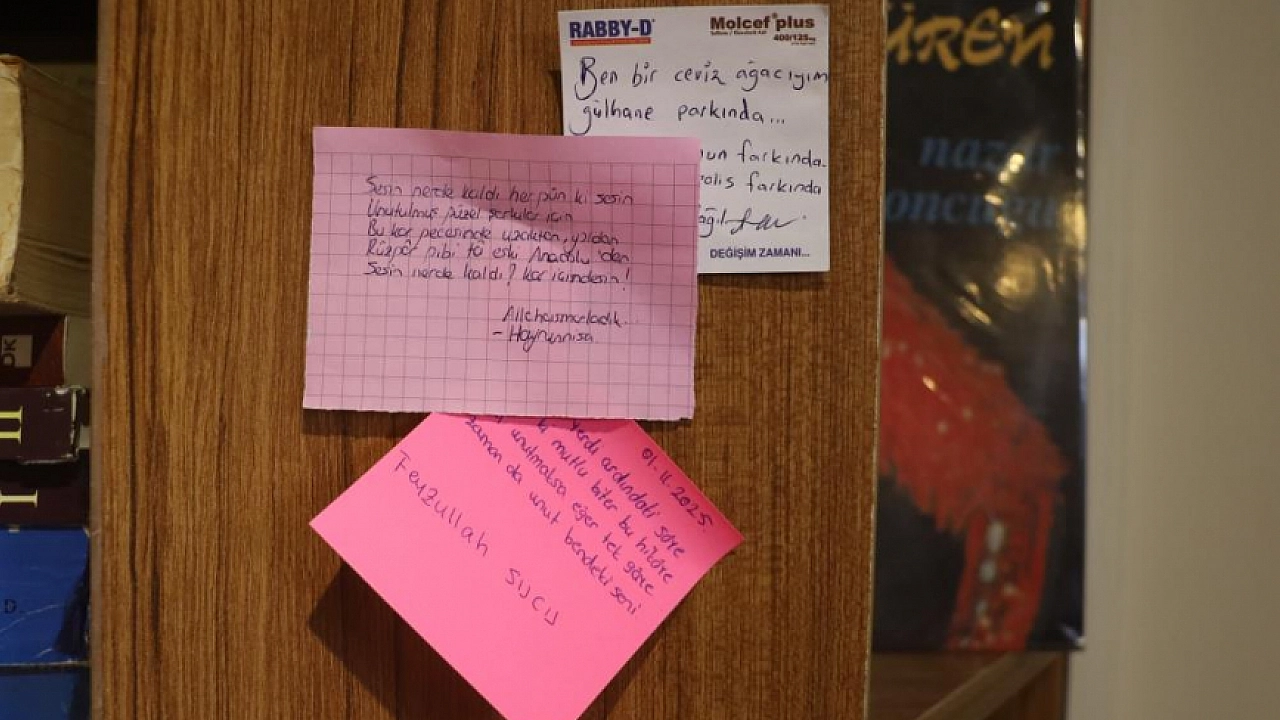 RABBY-D
Molcef plus
400/125mg
Ben bir ceviz ağacıyım
gülhane parkında...
farkında.
farkında
DEĞİŞİM ZAMANI...
Sesin nerde kaldı her gün ki sesin
Unutulmuş güzel şarkılar için
Bu kar gecesinde uzaktan, yoldan
Rüzgâr gibi tâ eski Anadolu'dan
Sesin nerde kaldı? Kar içindesin!
Allahaısmarladık...
- Hayrunnisa
01.11.2025
verdi ardındaki söre
mutlu biter bu hikâye
unutmaksa eğer tek göre
zaman da unut bendeki seni
Feyzullah SUCU
ÜREN
nazar
oncuğu
II
I
DK
D.